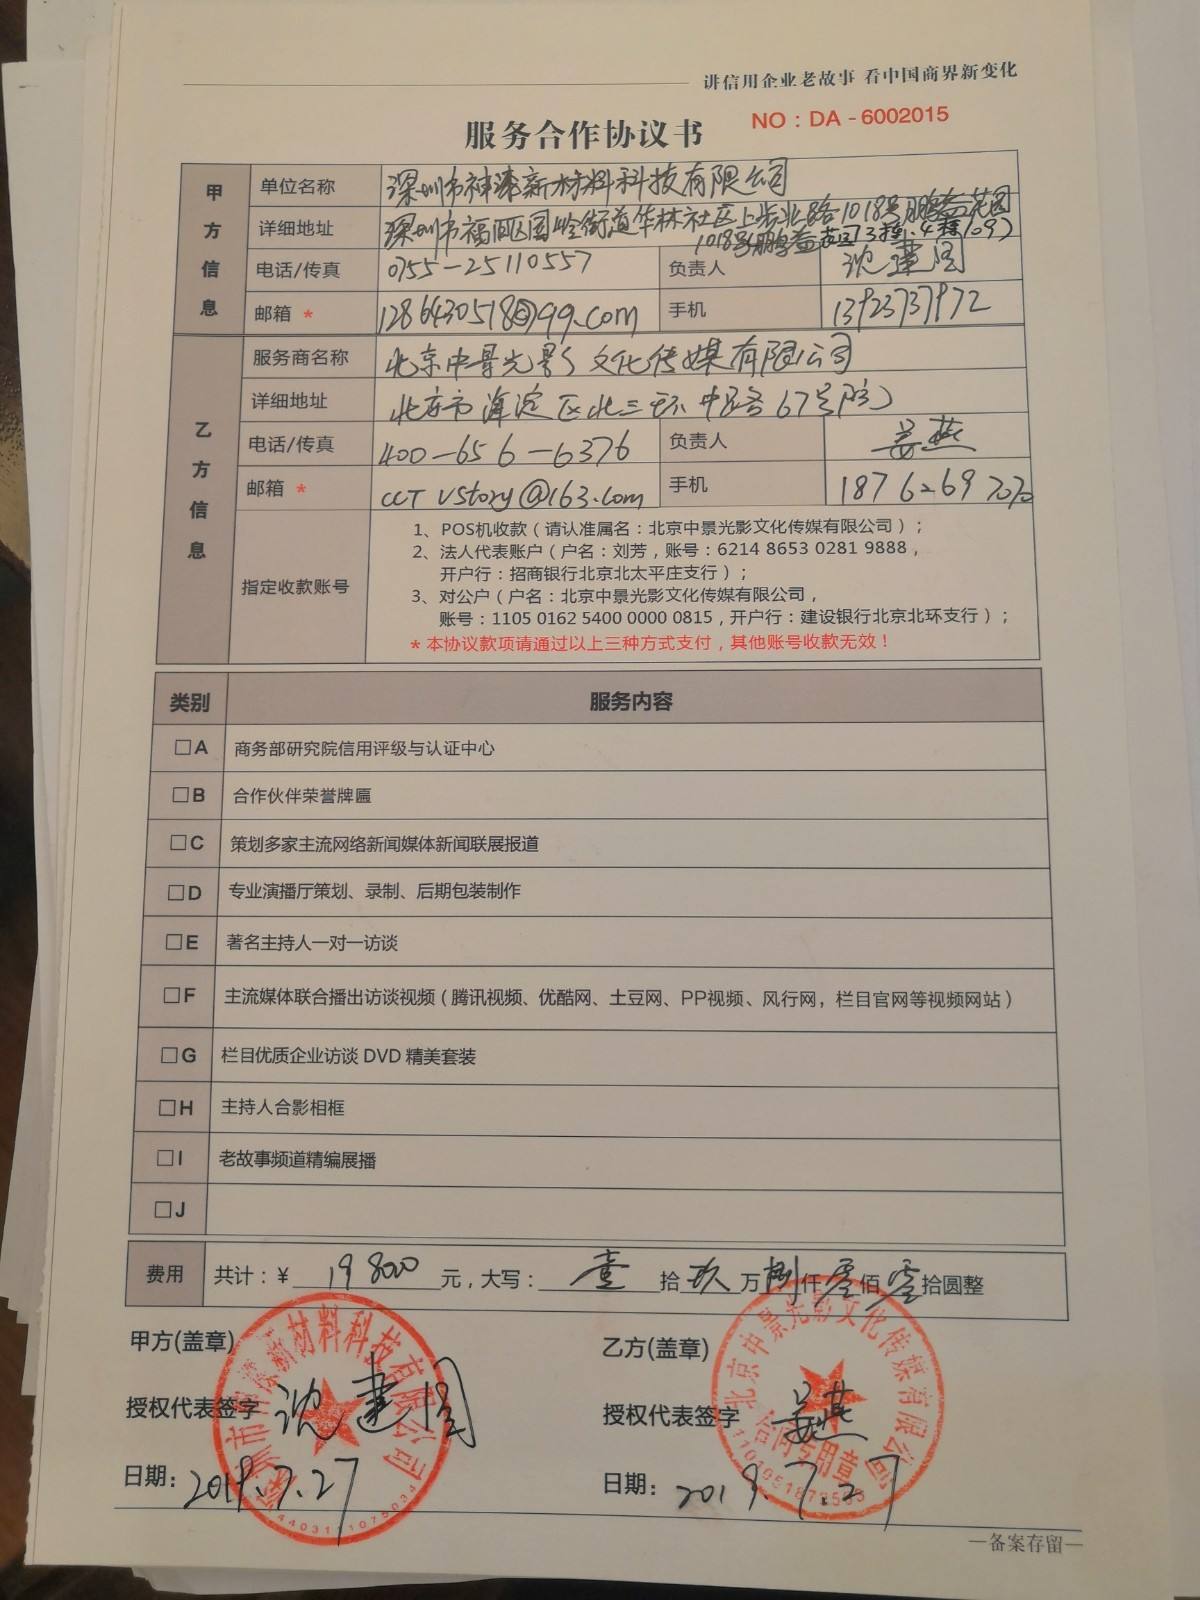 讲信用企业老故事 看中国商界新变化
服务合作协议书 NO：DA-6002015
甲方信息
单位名称 深圳市神漆新材料科技有限公司
详细地址 深圳市福田区园岭街道华林社区上步北路1018号鹏益花园
1018号鹏益花园3栋.4栋109)
电话/传真 0755-25110557 负责人 沈建国
邮箱 * 手机 13923737972
乙方信息
服务商名称 北京中景光影文化传媒有限公司
详细地址 北京市海淀区北三环中路67号院
电话/传真 400-656-6376 负责人 吴燕
邮箱 * CCTVstory@163.com 手机 18762697070
指定收款账号
1、POS机收款（请认准属名：北京中景光影文化传媒有限公司）；
2、法人代表账户（户名：刘芳，账号：6214 8653 0281 9888，
开户行：招商银行北京北太平庄支行）；
3、对公户（户名：北京中景光影文化传媒有限公司，
账号：1105 0162 5400 0000 0815，开户行：建设银行北京北环支行）；
* 本协议款项请通过以上三种方式支付，其他账号收款无效！
类别 服务内容
□A 商务部研究院信用评级与认证中心
□B 合作伙伴荣誉牌匾
□C 策划多家主流网络新闻媒体新闻联展报道
□D 专业演播厅策划、录制、后期包装制作
□E 著名主持人一对一访谈
□F 主流媒体联合播出访谈视频（腾讯视频、优酷网、土豆网、PP视频、风行网，栏目官网等视频网站）
□G 栏目优质企业访谈 DVD 精美套装
□H 主持人合影相框
□I 老故事频道精编展播
□J
费用 共计：¥ 19800 元，大写：壹 拾 玖 万 捌 仟 零 佰 零 拾圆整
甲方(盖章) 乙方(盖章)
授权代表签字 沈建国 授权代表签字 吴燕
日期：2019.7.27 日期：2019.7.27
北京中景光影文化传媒有限公司
合同专用章
—备案存留—